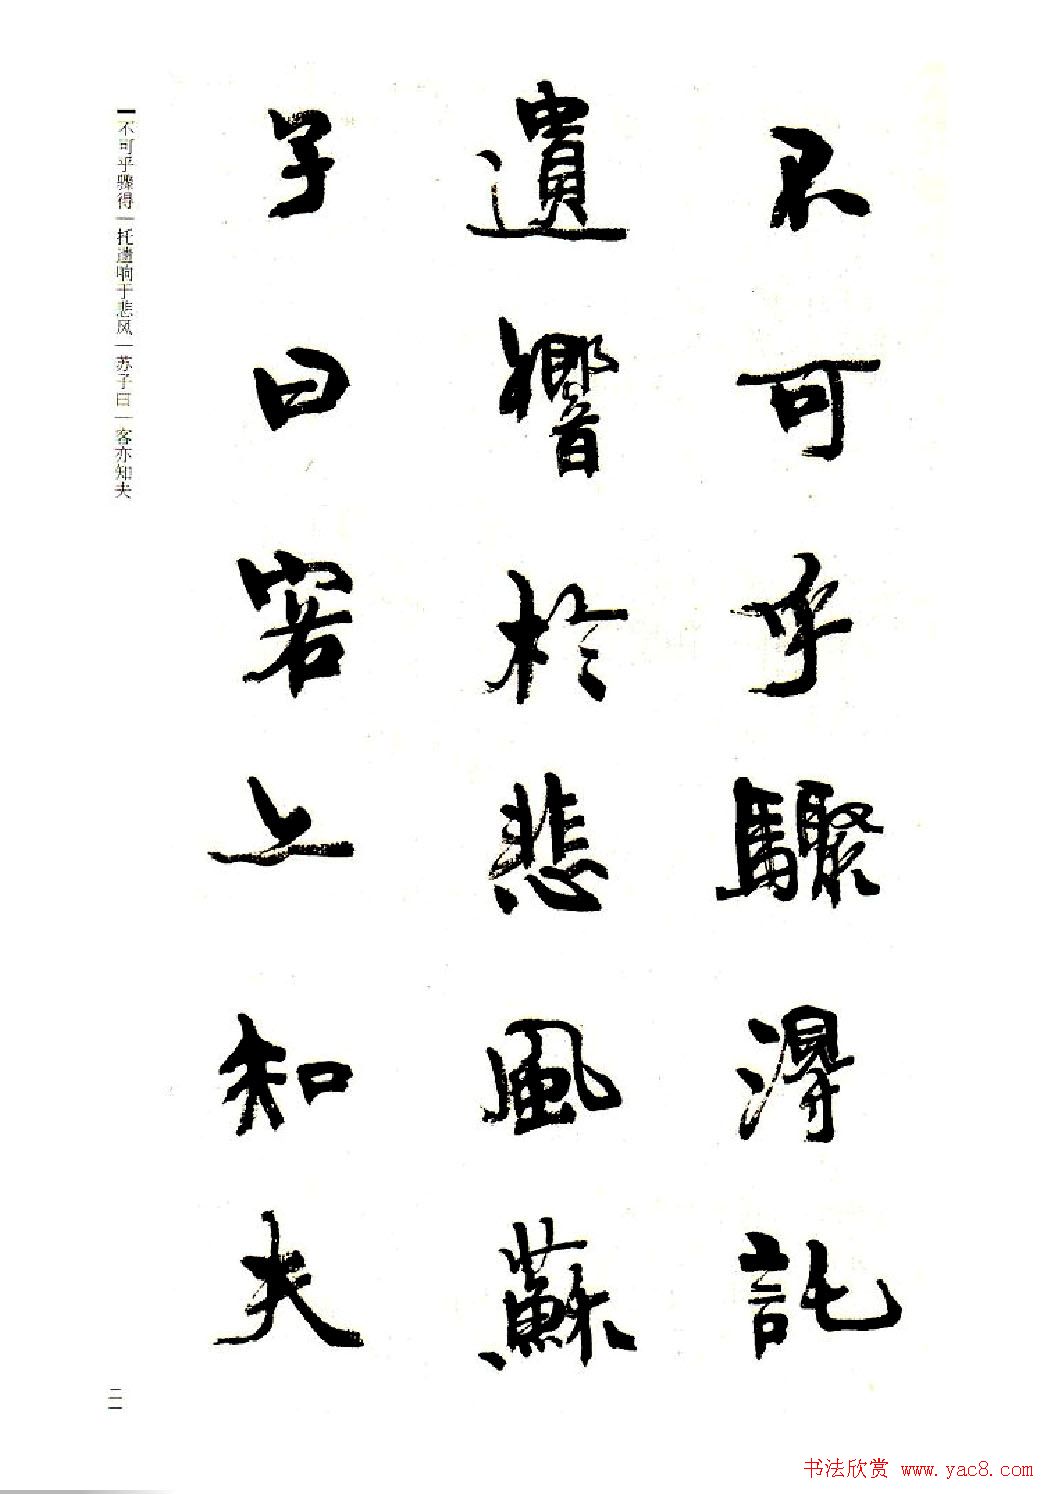 不可乎驟得託
遺響於悲風蘇
子曰客亦知夫
不可乎骤得｜托遗响于悲风｜苏子曰｜客亦知夫
二一
书法欣赏 www.yac8.com